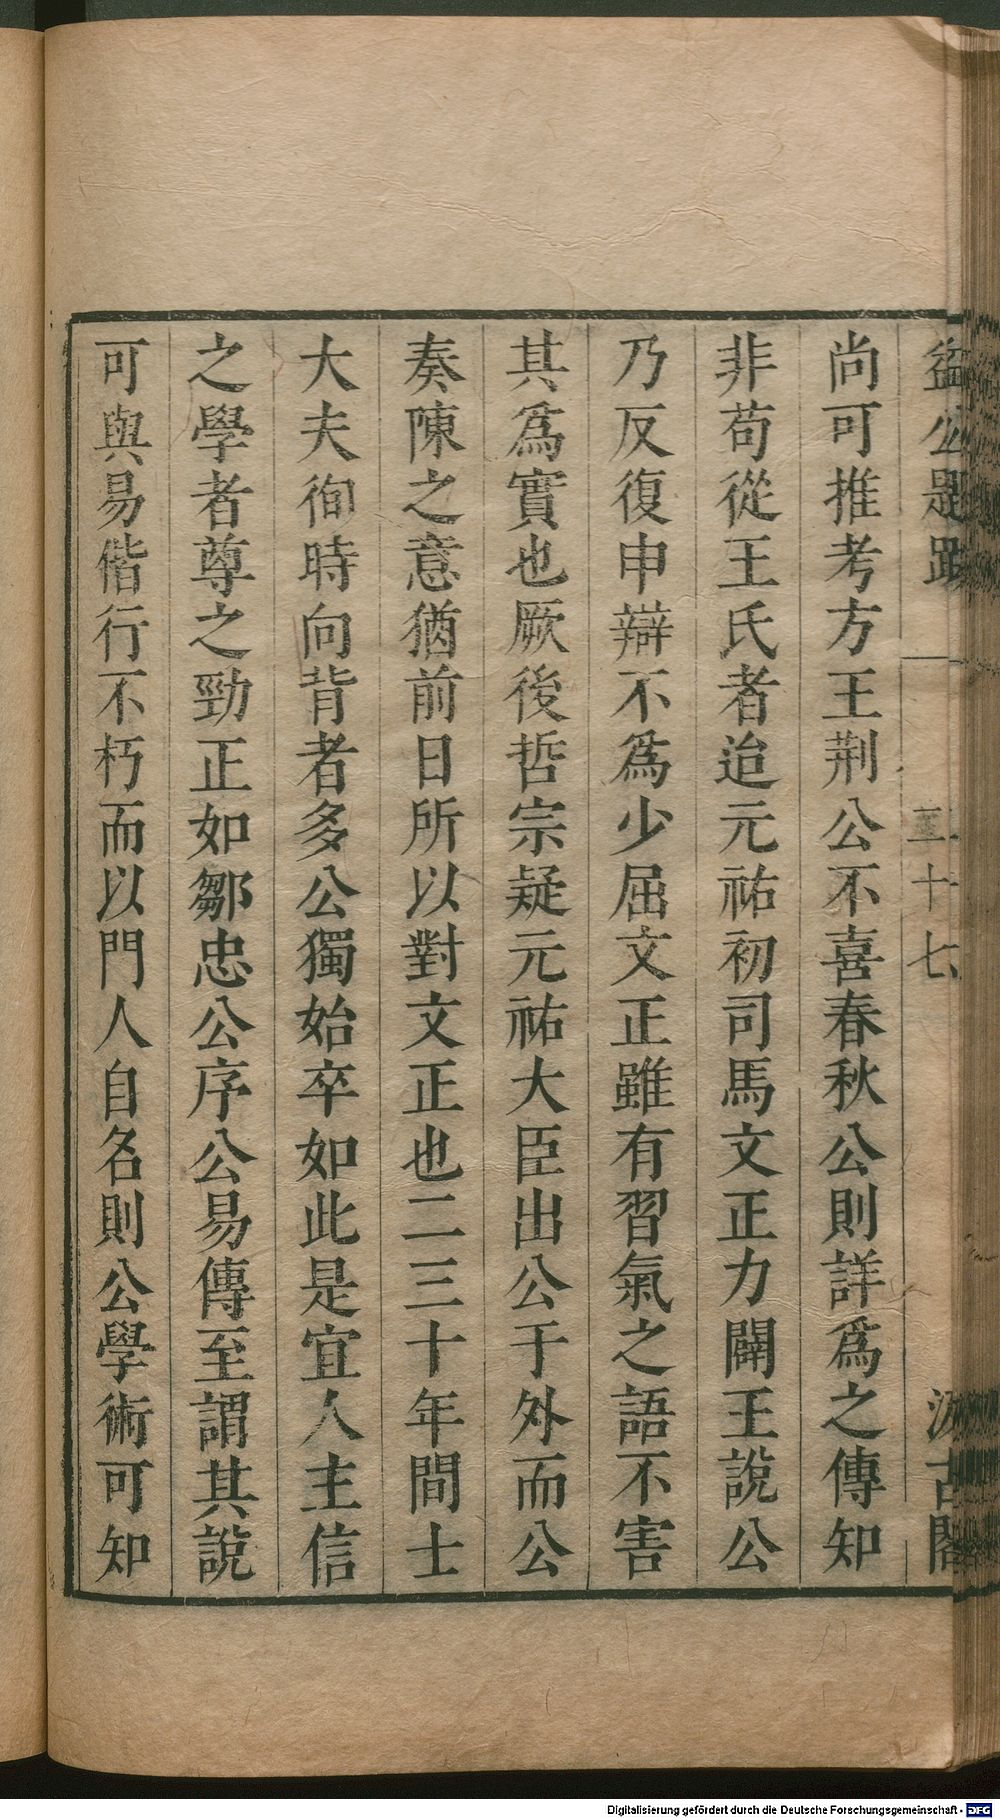 益公題跋
二十七
汲古閣
尚可推考方王荆公不喜春秋公則詳爲之傳知
非苟從王氏者迨元祐初司馬文正力闢王說公
乃反復申辯不爲少屈文正雖有習氣之語不害
其爲實也厥後哲宗疑元祐大臣出公于外而公
奏陳之意猶前日所以對文正也二三十年間士
大夫徇時向背者多公獨始卒如此是宜人主信
之學者尊之勁正如鄒忠公序公易傳至謂其說
可與易偕行不朽而以門人自名則公學術可知
Digitalisierung gefördert durch die Deutsche Forschungsgemeinschaft - DFG